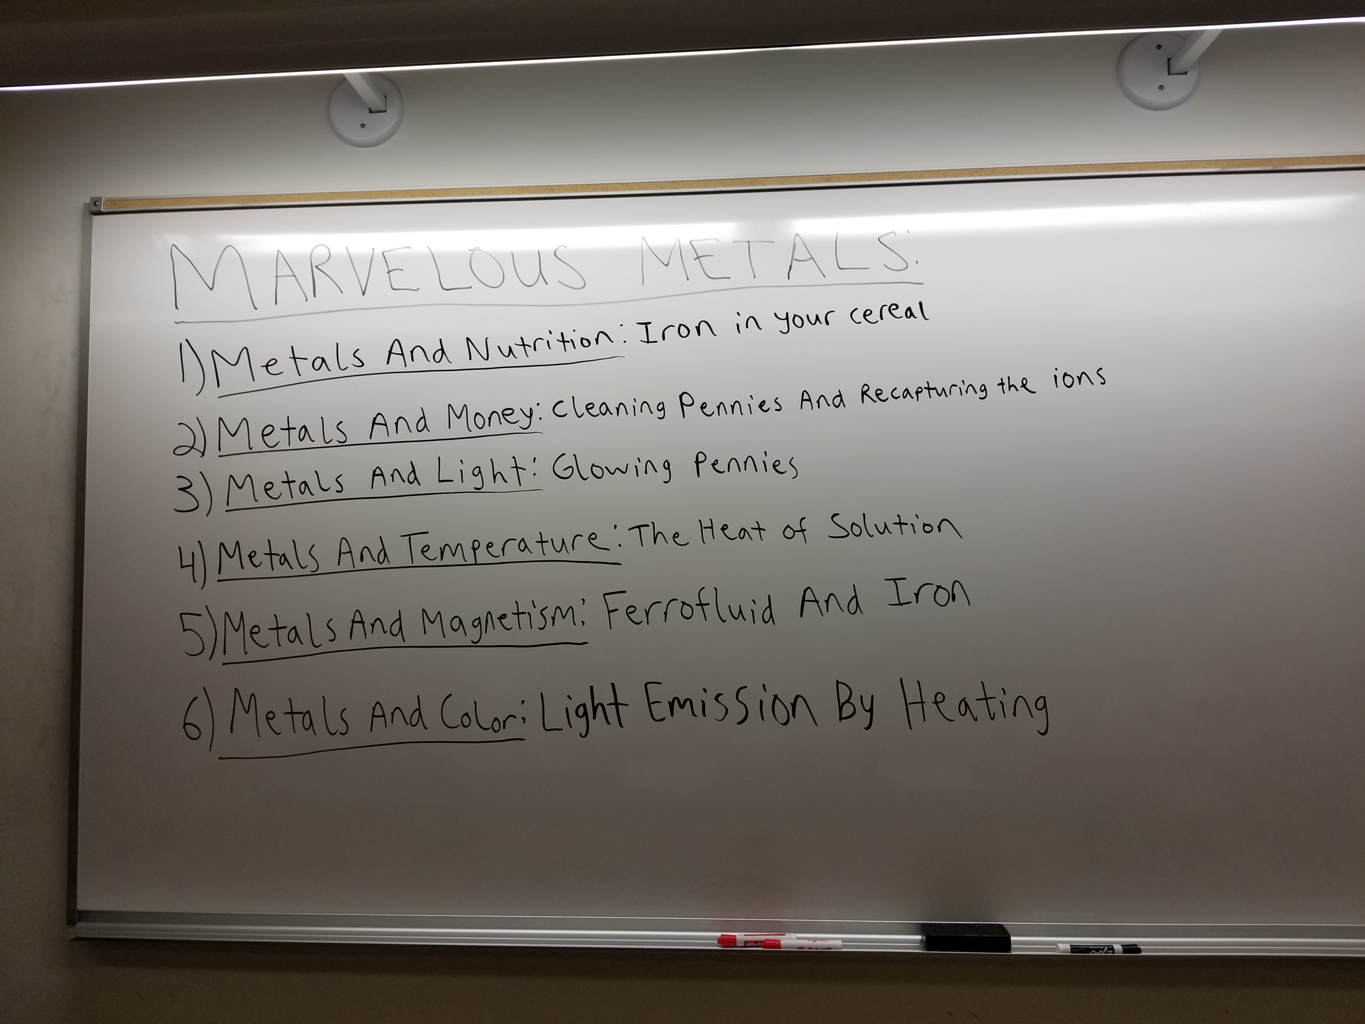 MARVELOUS METALS:
1) Metals And Nutrition: Iron in your cereal
2) Metals And Money: Cleaning Pennies And Recapturing the ions
3) Metals And Light: Glowing Pennies
4) Metals And Temperature: The Heat of Solution
5) Metals And Magnetism: Ferrofluid And Iron
6) Metals And Color: Light Emission By Heating